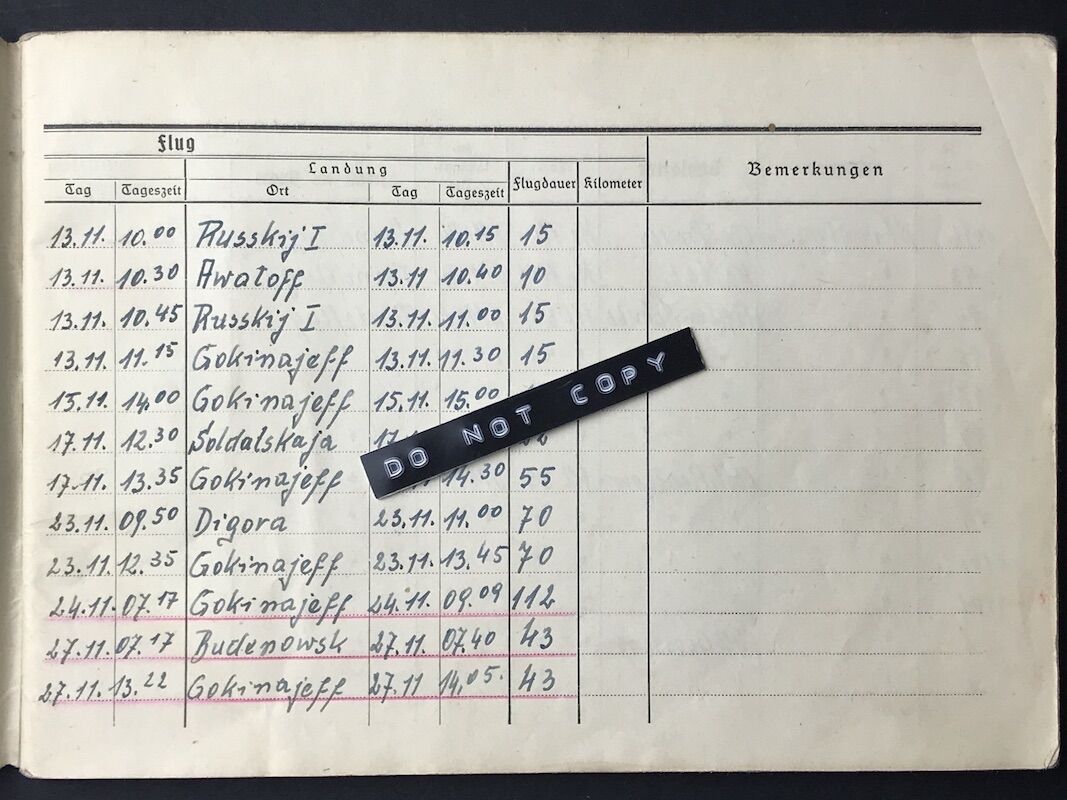 Flug
Landung
Bemerkungen
Tag Tageszeit Ort Tag Tageszeit Flugdauer Kilometer
13.11. 10.00 Russkij I 13.11. 10.15 15
13.11. 10.30 Awatoff 13.11 10.40 10
13.11. 10.45 Russkij I 13.11. 11.00 15
13.11. 11.15 Gokinajeff 13.11. 11.30 15
15.11. 14.00 Gokinajeff 15.11. 15.00
17.11. 12.30 Soldatskaja
17.11. 13.35 Gokinajeff 14.30 55
23.11. 09.50 Digora 23.11. 11.00 70
23.11. 12.35 Gokinajeff 23.11. 13.45 70
24.11. 07.17 Gokinajeff 24.11. 09.09 112
27.11. 07.17 Budenowsk 27.11. 07.40 43
27.11. 13.22 Gokinajeff 27.11 14.05. 43
DO NOT COPY